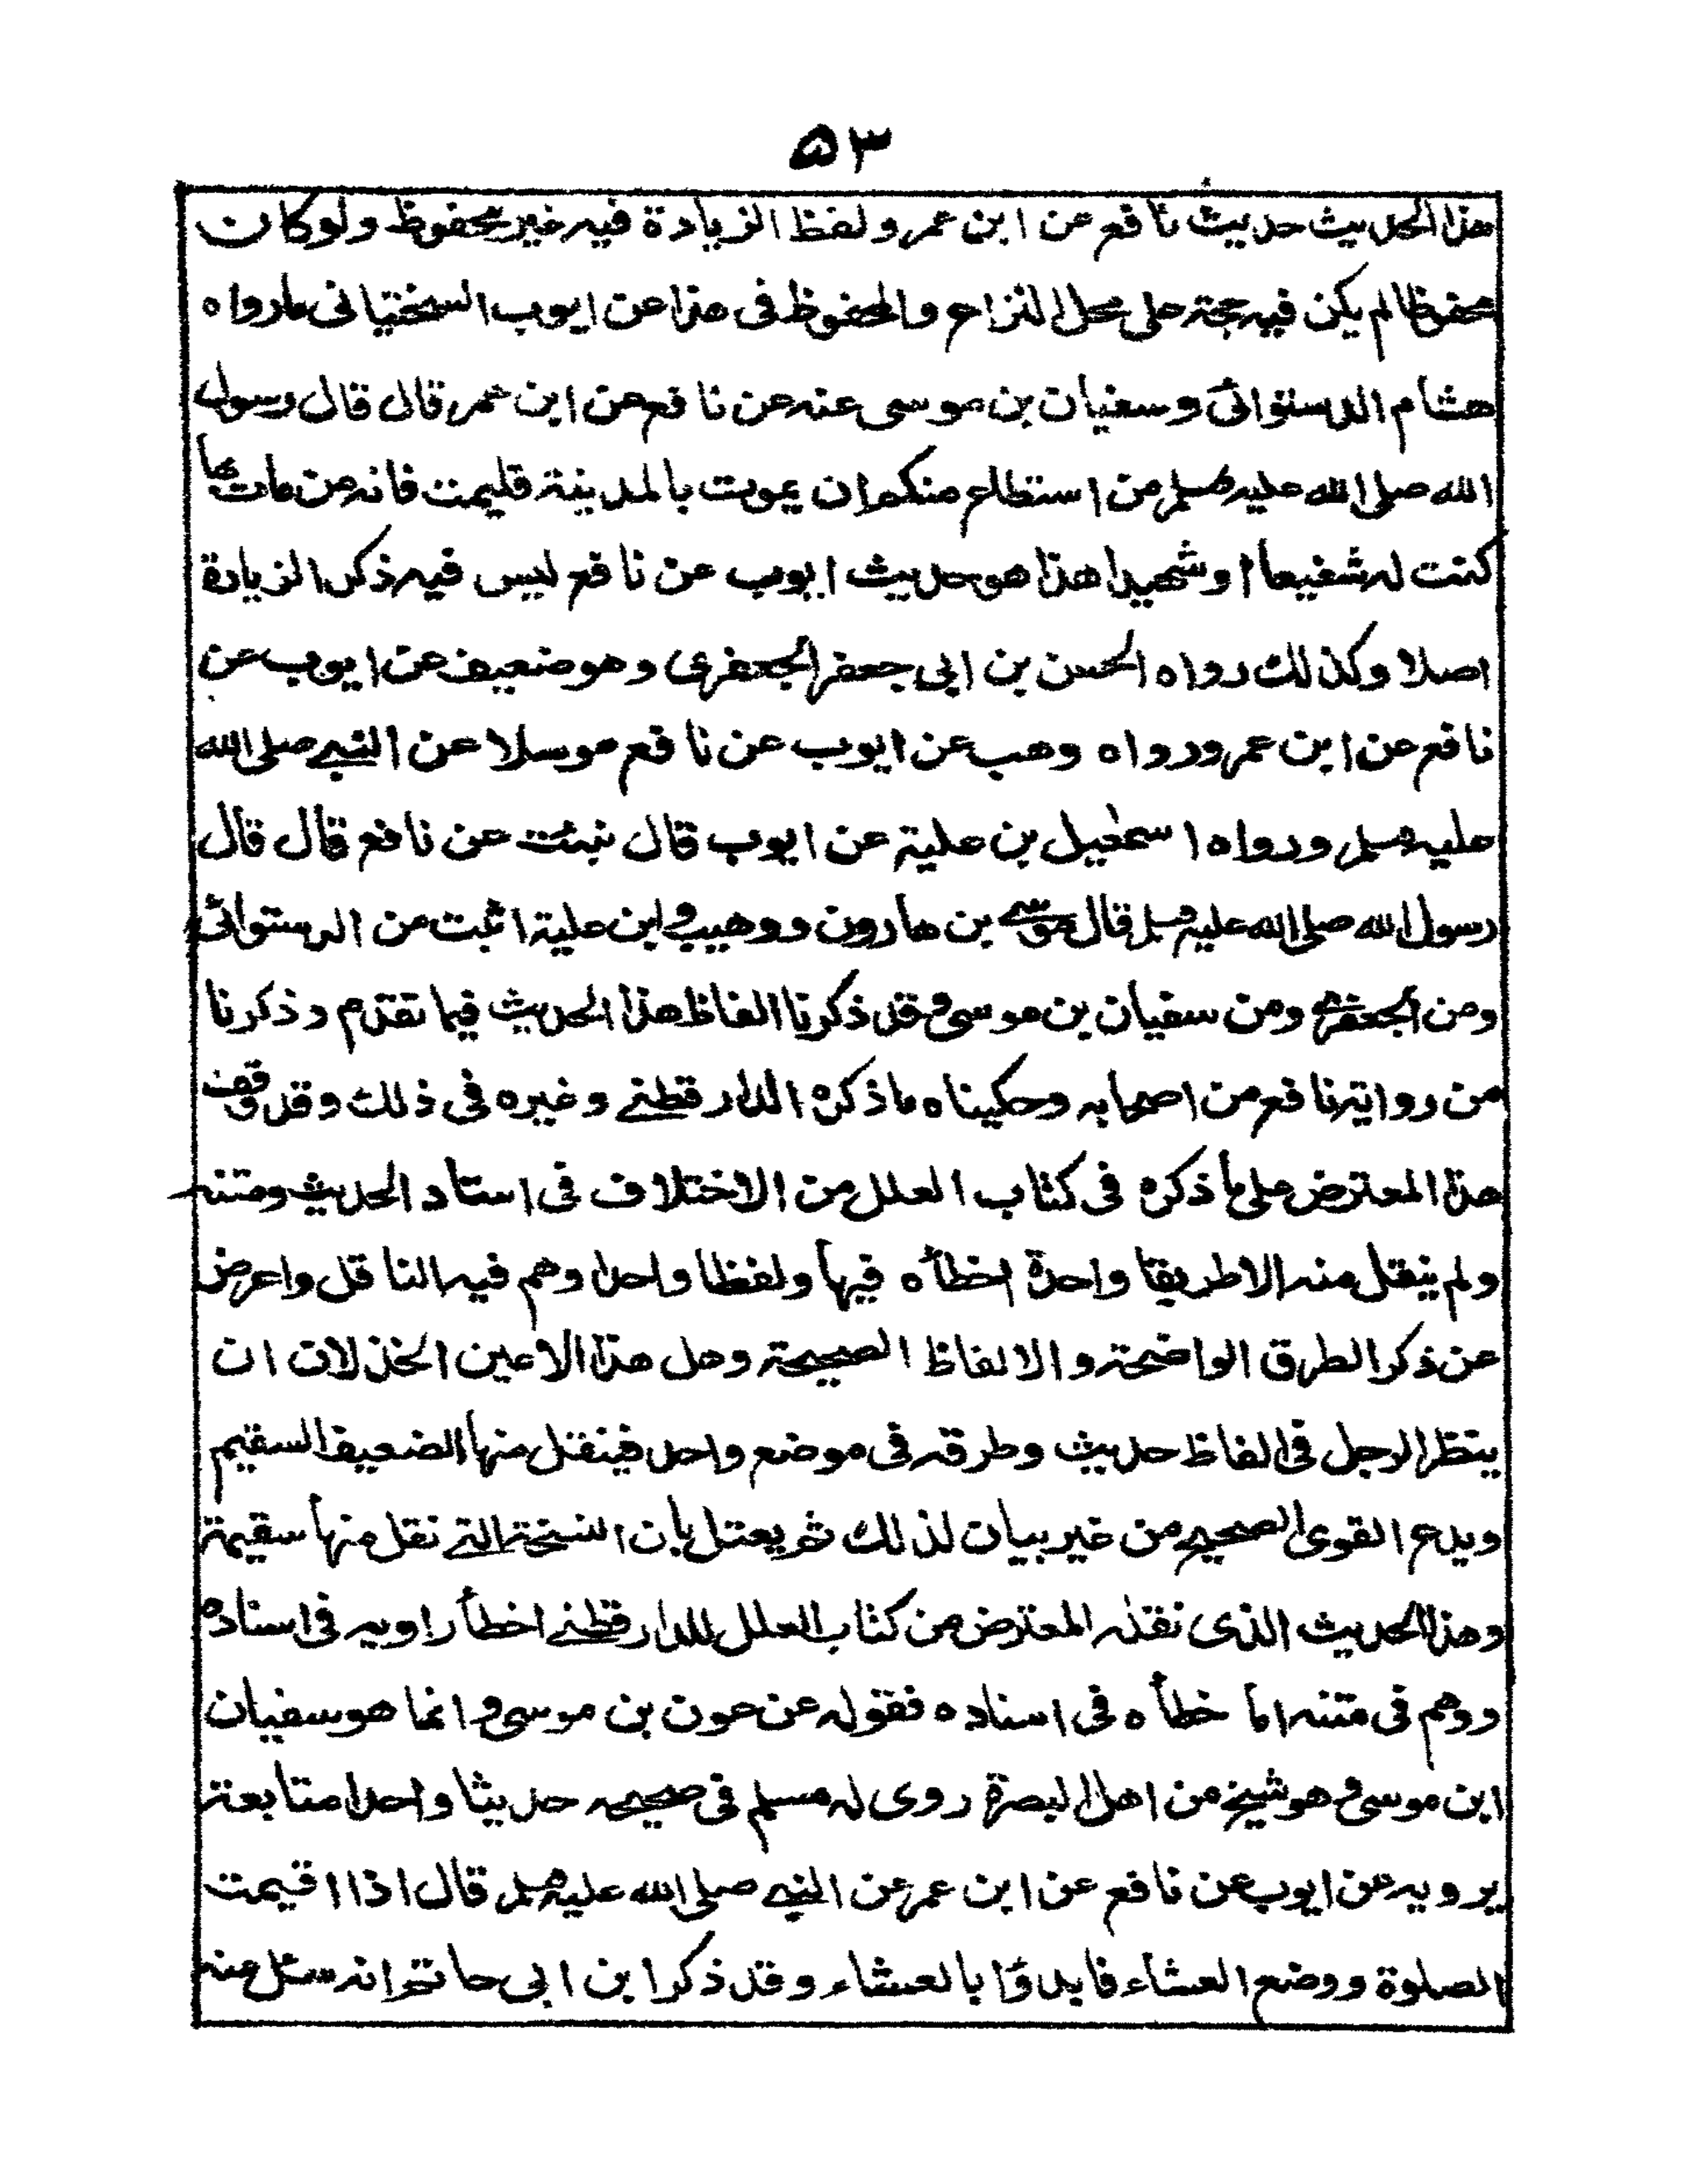 ۵۳
هذا الحديث حديث نافع عن ابن عمر ولفظ الزيادة فيه غير محفوظ ولو كان
محفوظا لم يكن فيه حجة على محل النزاع والمحفوظ فى هذا عن ايوب السختيانى ما رواه
هشام الدستوائى وسفيان بن موسى عنه عن نافع عن ابن عمر قال قال رسول
الله صلى الله عليه وسلم من استطاع منكم ان يموت بالمدينة فليمت فانه من مات بها
كنت له شفيعا او شهيدا هذا هو حديث ايوب عن نافع ليس فيه ذكر الزيادة
اصلا وكذلك رواه الحسن بن ابى جعفر الجعفرى وهو ضعيف عن ايوب عن
نافع عن ابن عمر ورواه وهب عن ايوب عن نافع موسلا عن النبى صلى الله
عليه وسلم ورواه اسمعيل بن علية عن ايوب قال نبئت عن نافع قال قال
رسول الله صلى الله عليه وسلم قال موسى بن هارون ووهيب وابن علية اثبت من الدستوائى
ومن الجعفرى ومن سفيان بن موسى وقد ذكرنا الفاظ هذا الحديث فيما تقدم وذكرنا
من رواية نافع من اصحابه وحكيناه ما ذكره الدارقطنى وغيره فى ذلك وقد وقف
هذا المعترض على ما ذكره فى كتاب العلل من الاختلاف فى استاد الحديث ومتنه
ولم ينقل منه الا طريقا واحدة اخطأه فيها ولفظا واحدا وهم فيه الناقل واعرض
عن ذكر الطرق الواضحة والالفاظ الصحيحة وهل هذا الا عين الخذلان ان
ينظر الرجل فى الفاظ حديث وطرقه فى موضع واحد فينقل منها الضعيف السقيم
ويدع القوى الصحيح من غير بيان لذلك ثم يعتل بان النسخة التى نقل منها سقيمة
وهذا الحديث الذى نقله المعترض من كتاب العلل للدارقطنى اخطأ راويه فى اسناده
ووهم فى متنه اما خطأه فى اسناده فقوله عن عون بن موسى وانما هو سفيان
ابن موسى وهو شيخ من اهل البصرة روى له مسلم فى صحيحه حديثا واحدا متابعة
يرويه عن ايوب عن نافع عن ابن عمر عن النبى صلى الله عليه وسلم قال اذا اقيمت
الصلوة ووضع العشاء فابدؤا بالعشاء وقد ذكر ابن ابى حاتم انه سئل عنه